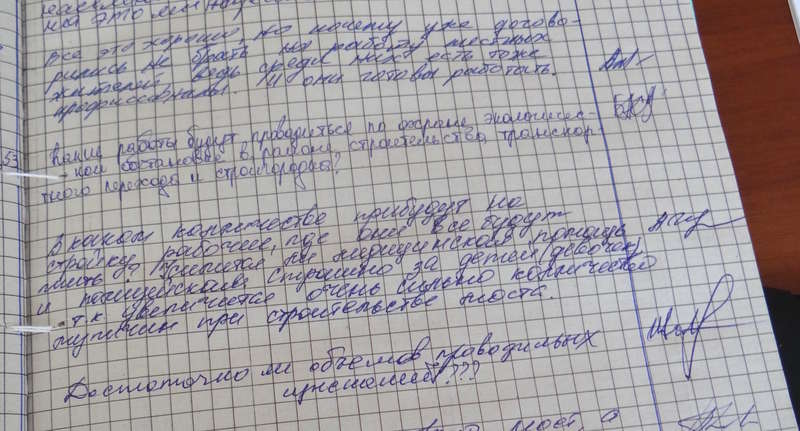 Все это хорошо, но почему уже догово-
рились не брать на работу местных
жителей ведь среди них есть тоже
профессионалы. И они готовы работать.
53 Какие работы будут проводиться по охране экологичес-
кой обстановке в районе строительства транспор-
тного перехода и стройгородка?
В каком количестве прибудут на
стройку рабочие, где они все будут
жить? ли медицинская помощь
и полицейская, страшно за детей (девочек)
т.к увеличится очень сильно количество
мужчин при строительстве моста.
Достаточно ли объемов проводимых
изысканий???
мост, а